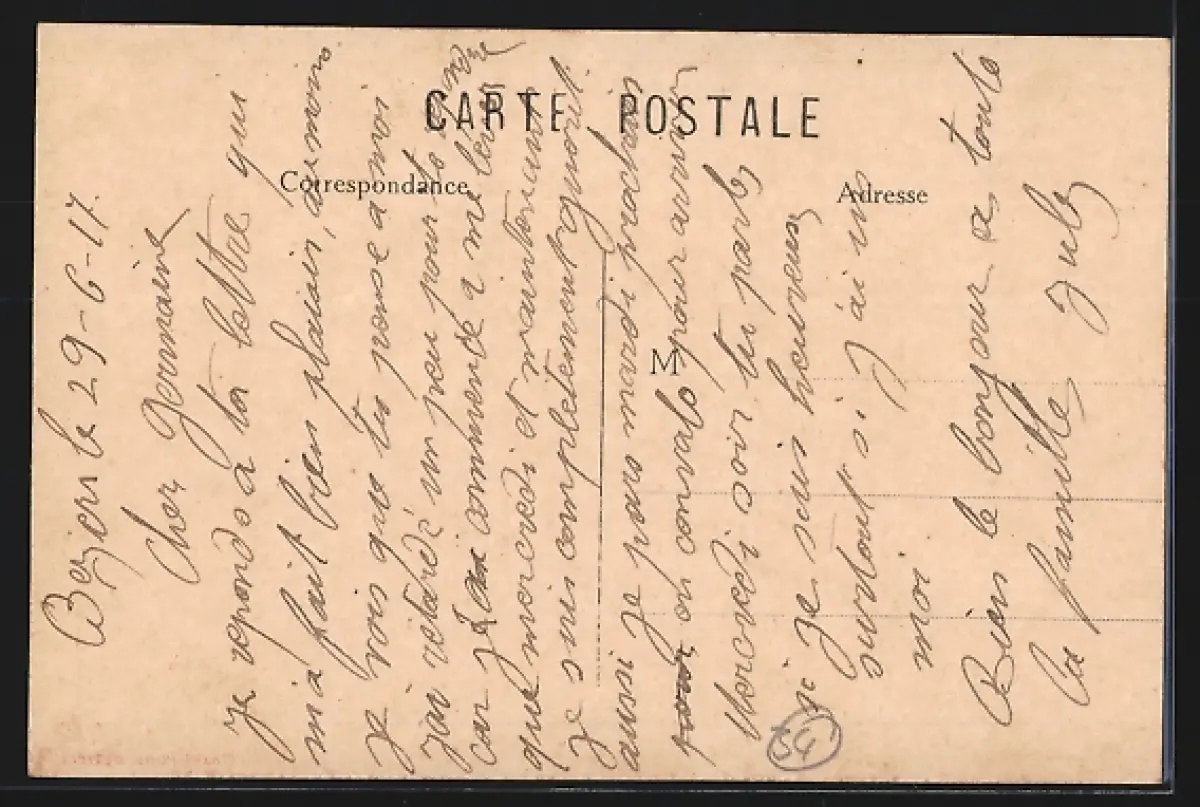 CARTE POSTALE
Correspondance
Adresse
M
Beziers le 29-6-17.
Cher Germaine
Je reponds a ta lettre qui
m'a fait bien plaisir, au moins
je vois que tu pense a moi
j'ai retardé un peu pour te
car je commence a me lever
que mercredi et maintenant
je suis completement guerit.
aussi je pars mardi prochain
en convalo pour arriver
mercredi voir tu parles
si je suis heureux
surtout si j'ai
moi
Bien le bonjour a toute
la famille Jules
54